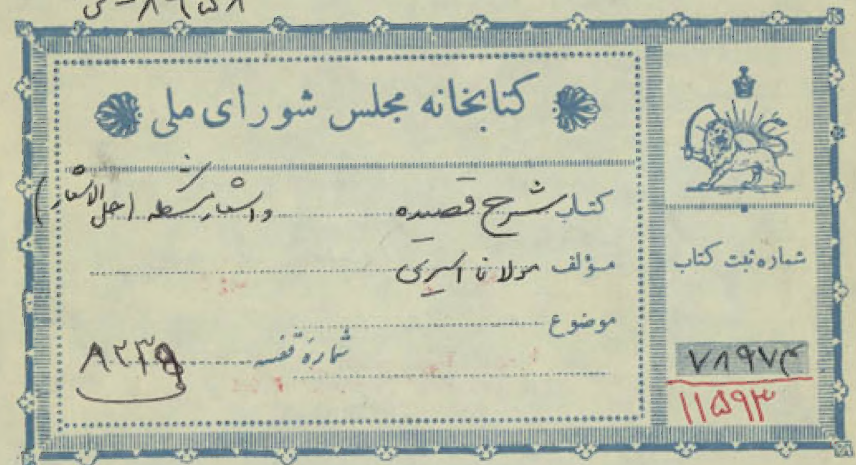 کتابخانه مجلس شورای ملی
کتاب شرح قصیده و اشعار مشکله (حل الاشعار)
مؤلف مولانا اسیری
موضوع
شمارهٔ قفسه ۸۲۳۵
شماره ثبت کتاب
۷۸۹۷۳
۱۱۵۹۳